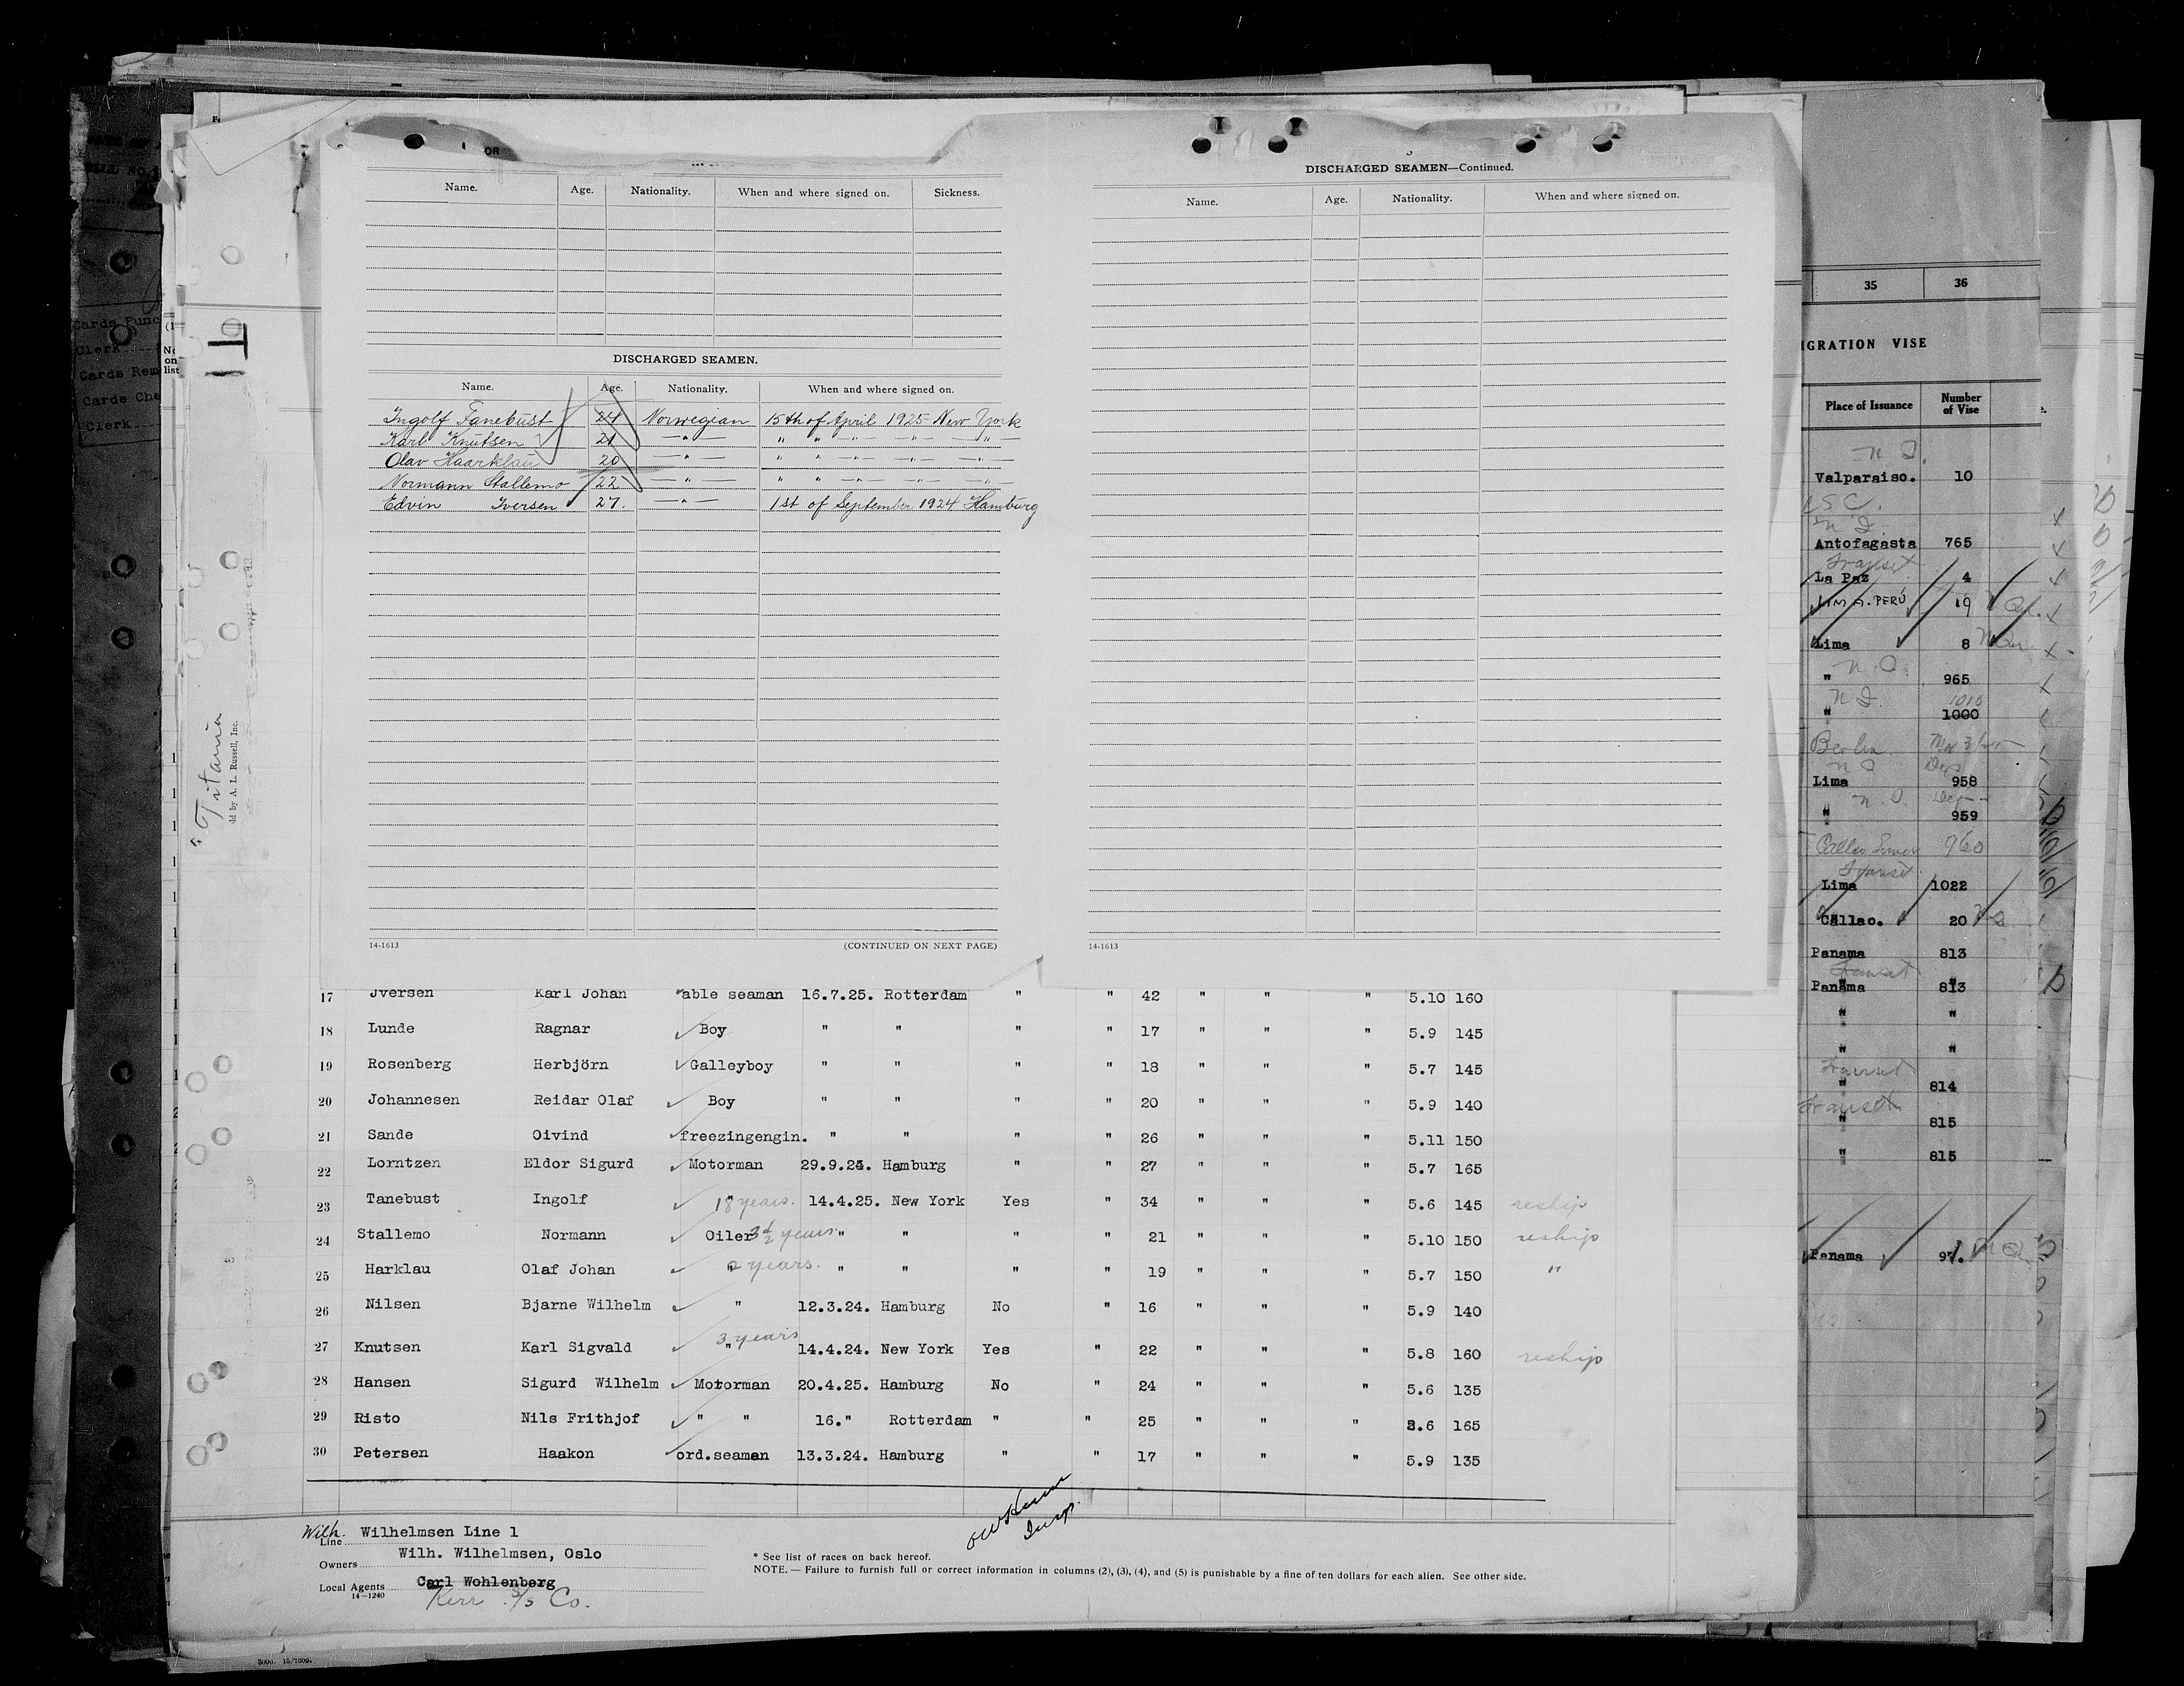 OR
Name. Age. Nationality. When and where signed on. Sickness.
DISCHARGED SEAMEN.
Name. Age. Nationality. When and where signed on.
Ingolf Tanebust 24 Norwegian 15th of April 1925 New York
Karl Knutsen 21 —"— " " —"— —"— —"—
Olav Haarklau 20 —"— " " —"— —"— —"—
Normann Stallemo 22 —"— " " —"— —"— —"—
Edvin Iversen 27. —"— 1st of September 1924 Hamburg
14-1613 (CONTINUED ON NEXT PAGE)
DISCHARGED SEAMEN—Continued.
Name. Age. Nationality. When and where signed on.
14-1613
17 Jversen Karl Johan able seaman 16.7.25. Rotterdam " " 42 " " " 5.10 160
18 Lunde Ragnar Boy " " " " 17 " " " 5.9 145
19 Rosenberg Herbjörn Galleyboy " " " " 18 " " " 5.7 145
20 Johannesen Reidar Olaf Boy " " " " 20 " " " 5.9 140
21 Sande Oivind freezingengin. " " " " 26 " " " 5.11 150
22 Lorntzen Eldor Sigurd Motorman 29.9.24. Hamburg " " 27 " " " 5.7 165
23 Tanebust Ingolf " 18 years. 14.4.25. New York Yes " 34 " " " 5.6 145 reship
24 Stallemo Normann Oiler 3 1/2 years " " " " 21 " " " 5.10 150 reship
25 Harklau Olaf Johan " 2 years. " " " " 19 " " " 5.7 150 "
26 Nilsen Bjarne Wilhelm " 12.3.24. Hamburg No " 16 " " " 5.9 140
27 Knutsen Karl Sigvald " 3 years 14.4.24. New York Yes " 22 " " " 5.8 160 reship
28 Hansen Sigurd Wilhelm Motorman 20.4.25. Hamburg No " 24 " " " 5.6 135
29 Risto Nils Frithjof " " 16." Rotterdam " " 25 " " " 6 165
30 Petersen Haakon ord.seaman 13.3.24. Hamburg " " 17 " " " 5.9 135
Insp.
Wilh. Line Wilhelmsen Line 1
Owners Wilh. Wilhelmsen, Oslo
Local Agents Carl Wohlenberg
14—1240 Kerr S/S Co.
* See list of races on back hereof.
NOTE. — Failure to furnish full or correct information in columns (2), (3), (4), and (5) is punishable by a fine of ten dollars for each alien. See other side.
"Titania
ld by A. L. Russell, Inc.
Cards Punc
Clerk
Cards Rem
Cards Che
Clerk
No
on
list
35 36
IGRATION VISE
Place of Issuance Number of Vise
Valparaiso. 10
Antofagasta 765
Transit
La Paz 4
LIMA. PERÚ 19
Lima 8
" 965
1010
" 1000
Berlin
Lima 958
" 959
960
Transit
Lima 1022
Callao. 20
Panama 813
Transit
Panama 813
" "
" "
Transit
" 814
Transit
" 815
" 815
Panama 97.